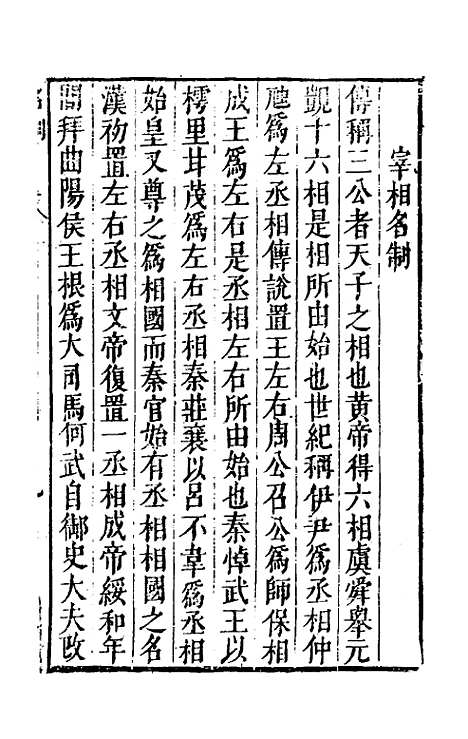 宰相名制
傳稱三公者天子之相也黄帝得六相虞舜舉元
凱十六相是相所由始也世紀稱伊尹爲丞相仲
虺爲左丞相傳說置王左右周公召公爲師保相
成王爲左右是丞相左右所由始也秦悼武王以
樗里甘茂爲左右丞相秦莊襄以呂不韋爲丞相
始皇又尊之爲相國而秦官始有丞相相國之名
漢初置左右丞相文帝復置一丞相成帝綏和年
間拜曲陽侯王根爲大司馬何武自御史大夫改